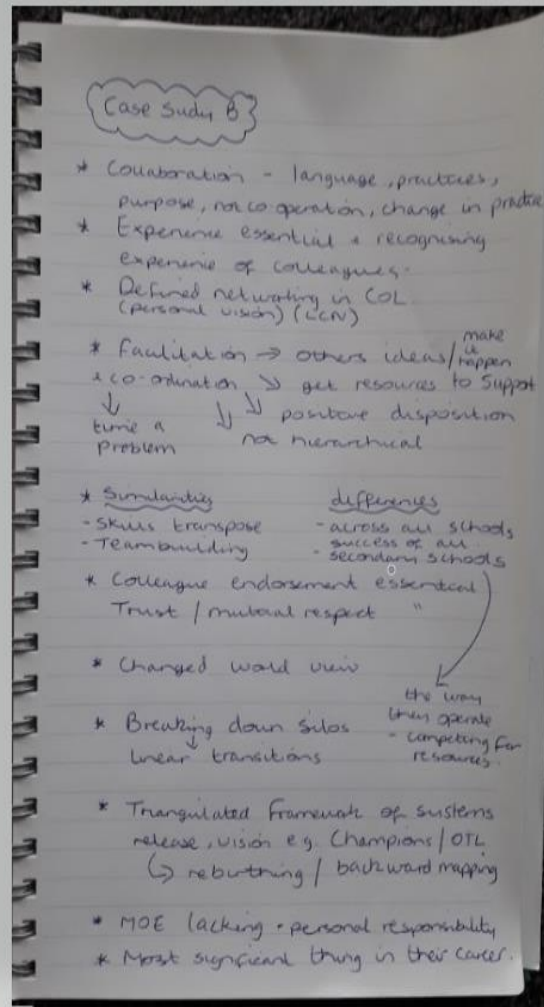 Case Sudy B
* Collaboration - language, practices,
purpose, not co operation, change in practice
* Experience essential + recognising
experience of colleagues.
* Defined networking in COL
(personal vision) (LCN)
* Facilitation → others ideas / make it happen
+ co-ordination ↘ get resources to support
↓ ↓↓ ↘ positive disposition
time a problem not hierarchical
* Similarities differences
- Skills transpose - across all schools
- Teambuilding success of all
- secondary schools
* Colleague endorsement essential
Trust / mutual respect "
* Changed world view
the way
they operate
* Breaking down silos - competing for
linear transitions resources.
* Triangulated framework of systems
release, vision e.g. Champions / OTL
↳ rebirthing / backward mapping
* MOE lacking - personal responsibility
* Most significant thing in their career.